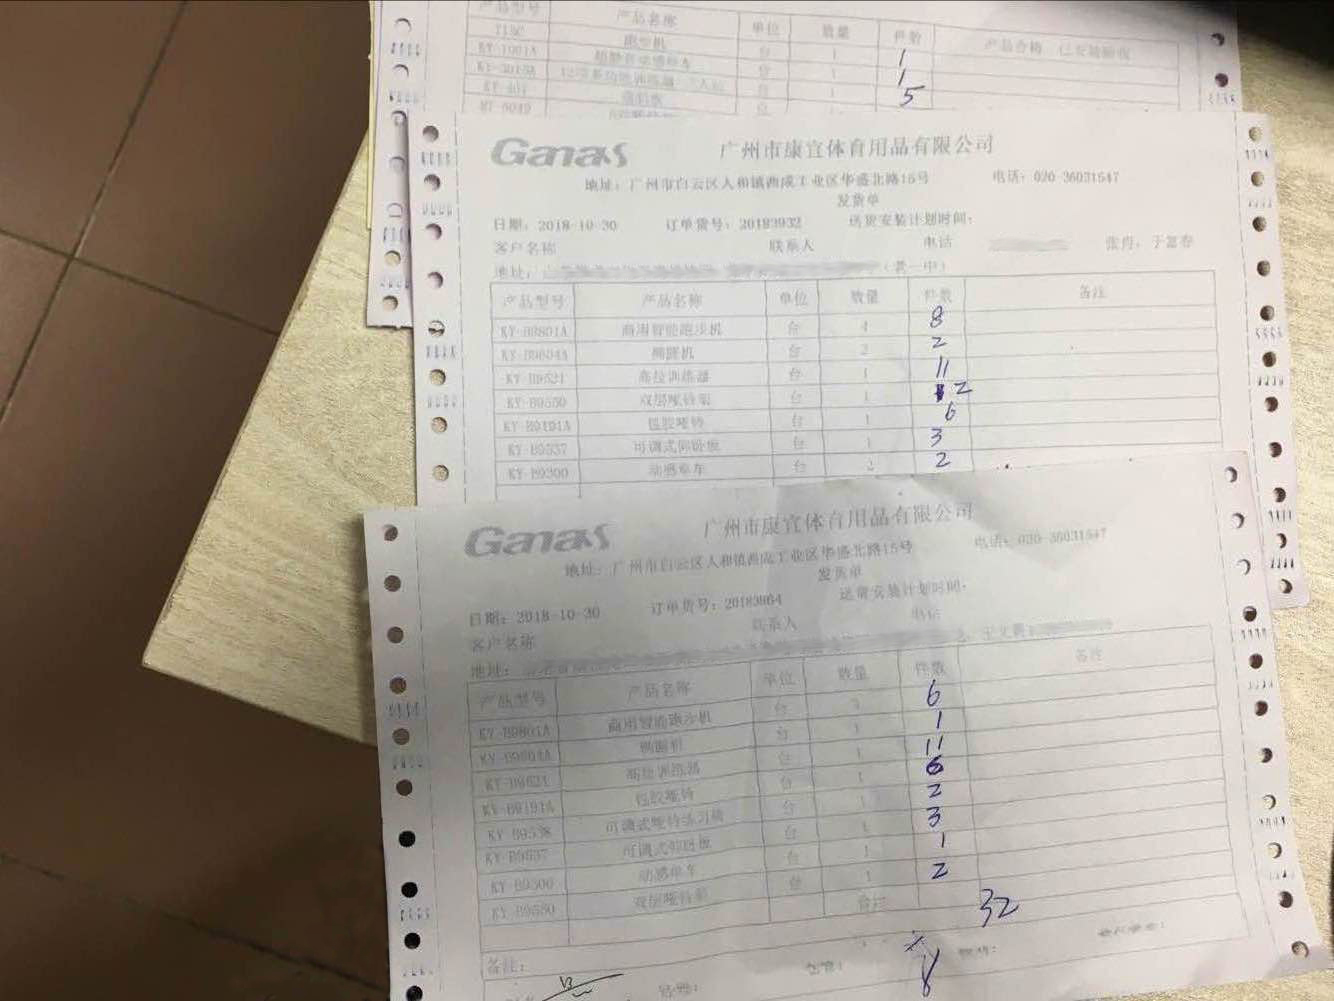 产品型号 产品名称 单位 数量 件数 产品合格 已安装验收
跑步机 台 1
KY-1901A 台 1 1
台 1 1
KY-401 台 1 5
Ganas 广州市康宜体育用品有限公司
地址：广州市白云区人和镇西成工业区华盛北路15号 电话：020-36031547
发货单
日期：2018-10-30 订单货号：20183932 送货安装计划时间：
客户名称 联系人 电话 张冉，于富春
地址： （老一中）
产品型号 产品名称 单位 数量 件数 备注
KY-B9801A 商用智能跑步机 台 4 8
KY-B9804A 椭圆机 台 2 2
KY-B9521 高拉训练器 台 1 11
KY-B9550 双层哑铃架 台 1 2
KY-B9191A 包胶哑铃 台 1 6
KY-B9537 可调式仰卧板 台 1 3
KY-B9300 动感单车 台 2 2
Ganas 广州市康宜体育用品有限公司
地址：广州市白云区人和镇西成工业区华盛北路15号 电话：020-36031547
发货单
日期：2018-10-30 订单货号：20183964 送货安装计划时间：
客户名称 联系人 电话
地址：
产品型号 产品名称 单位 数量 件数 备注
KY-B9801A 商用智能跑步机 台 3 6
KY-B9804A 椭圆机 台 1 1
KY-B9521 高拉训练器 台 1 11
KY-B9191A 包胶哑铃 台 1 6
KY-B9538 可调式哑铃练习椅 台 1 2
KY-B9537 可调式仰卧板 台 1 3
KY-B9300 动感单车 台 1 1
KY-B9550 双层哑铃架 台 1 2
合计 32
备注：
经理： 仓管： 8